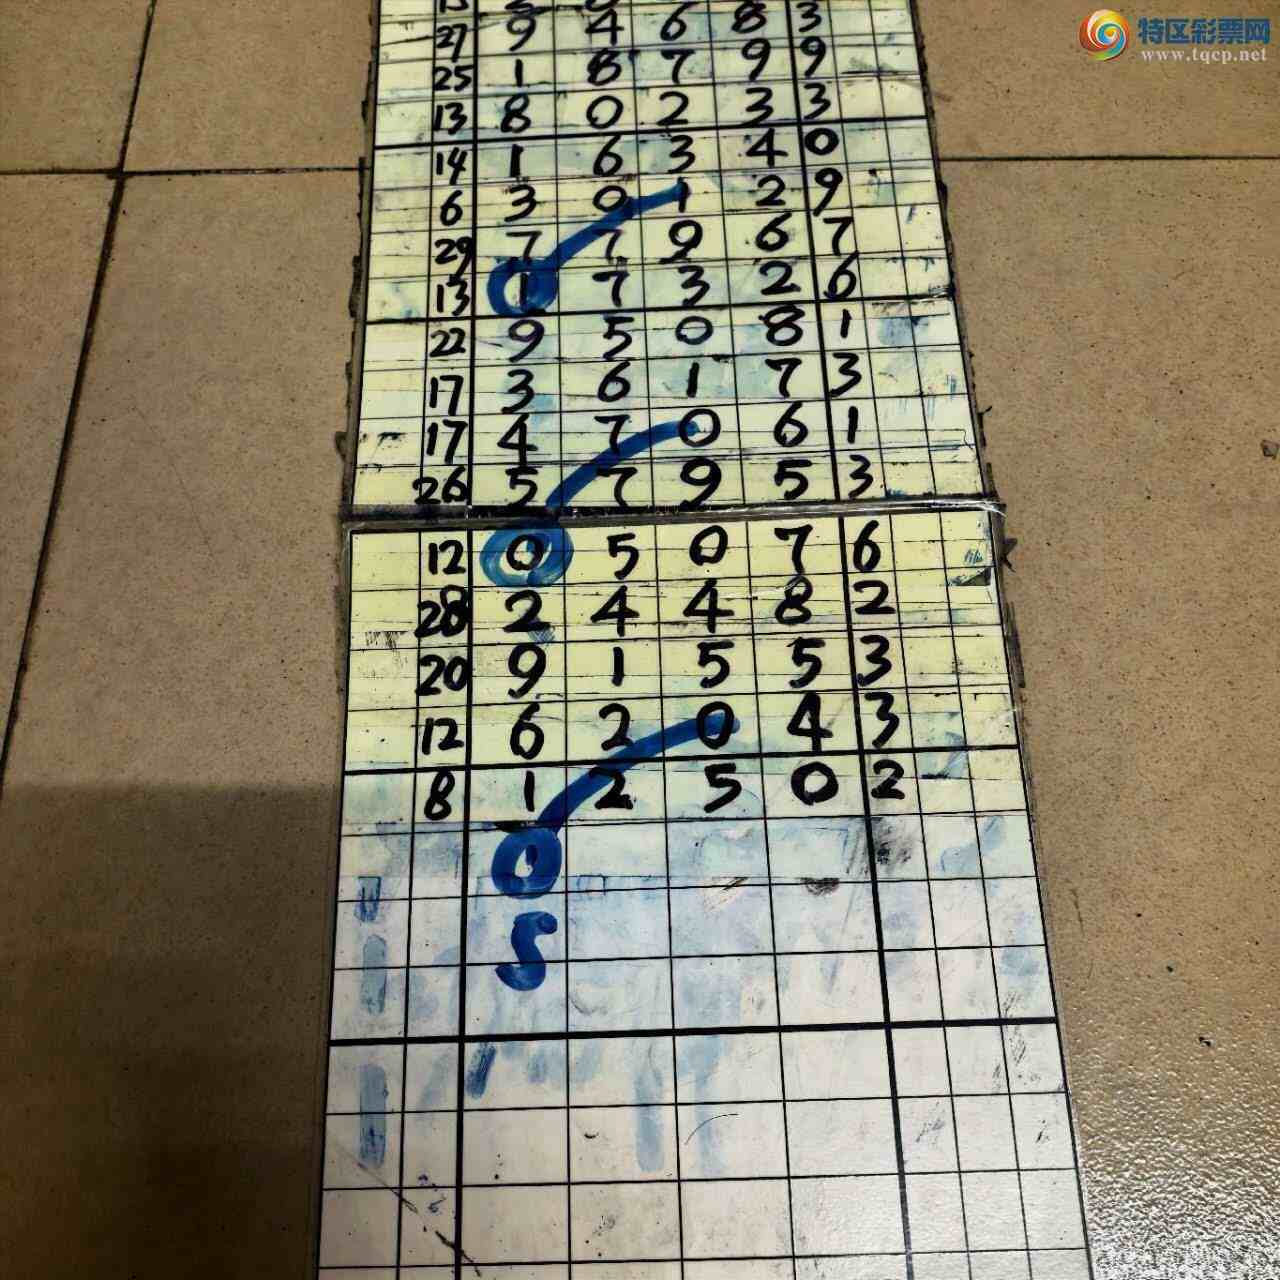 特区彩票网
www.tqcp.net
27 9 4 6 8 3
25 1 8 7 9 9
13 8 0 2 3 3
14 1 6 3 4 0
6 3 0 1 2 9
29 7 7 9 6 7
13 1 7 3 2 6
22 9 5 0 8 1
17 3 6 1 7 3
17 4 7 0 6 1
26 5 7 9 5 3
12 0 5 0 7 6
28 2 4 4 8 2
20 9 1 5 5 3
12 6 2 0 4 3
8 1 2 5 0 2
0
5